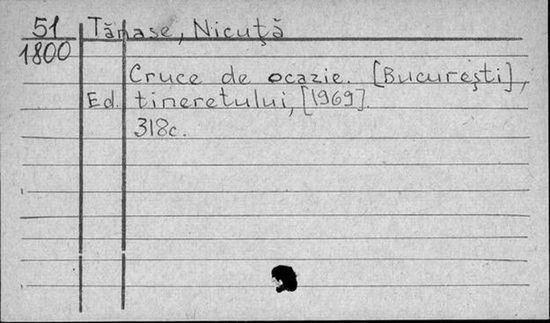 51 Tănase, Nicuţă
1800
Cruce de ocazie. [Bucureşti],
Ed. tineretului, [1969].
318c.